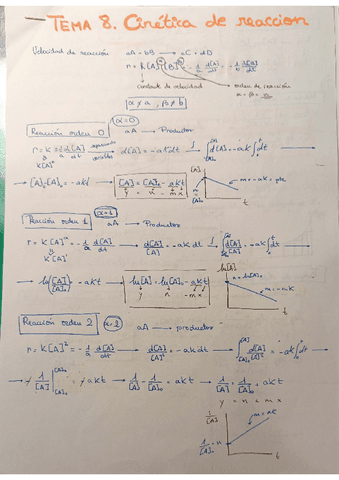 TEMA 8. Cinética de reaccion
Velocidad de reacción aA + bB → cC + dD
r = K[A]^α [B]^β = -1/a d[A]/dt = -1/b d[B]/dt
constante de velocidad orden de reacción
α ≠ a , β ≠ b
Reacción orden 0 α=0 aA → Productos
r = K = -1/a d[A]/dt → separando variables → d[A] = -aK dt → ∫ d[A] = -aK ∫ dt →
K[A]⁰
→ [A]-[A]₀ = -akt → [A] = [A]₀ - aKt
y = n - m x
[A]
[A]₀
m = -ak = pte
t
Reacción orden 1 α=1 aA → Productos
r = K[A]^α = -1/a d[A]/dt → d[A]/[A] = -ak dt → ∫ d[A]/[A] = -ak ∫ dt →
K[A]¹
→ ln [A]/[A]₀ = -akt → ln[A] = ln[A]₀ - akt
y n - m x
ln[A]
n = ln[A]₀
t
Reacción orden 2 α=2 aA → productos
r = K[A]² = -1/a d[A]/dt → d[A]/[A]² = -ak dt → ∫ d[A]/[A]² = -ak ∫ dt →
→ 1/[A] = akt → 1/[A] - 1/[A]₀ = akt → 1/[A] = 1/[A]₀ + akt
y = n + m x
1/[A]
1/[A]₀ = n
m = ak
t